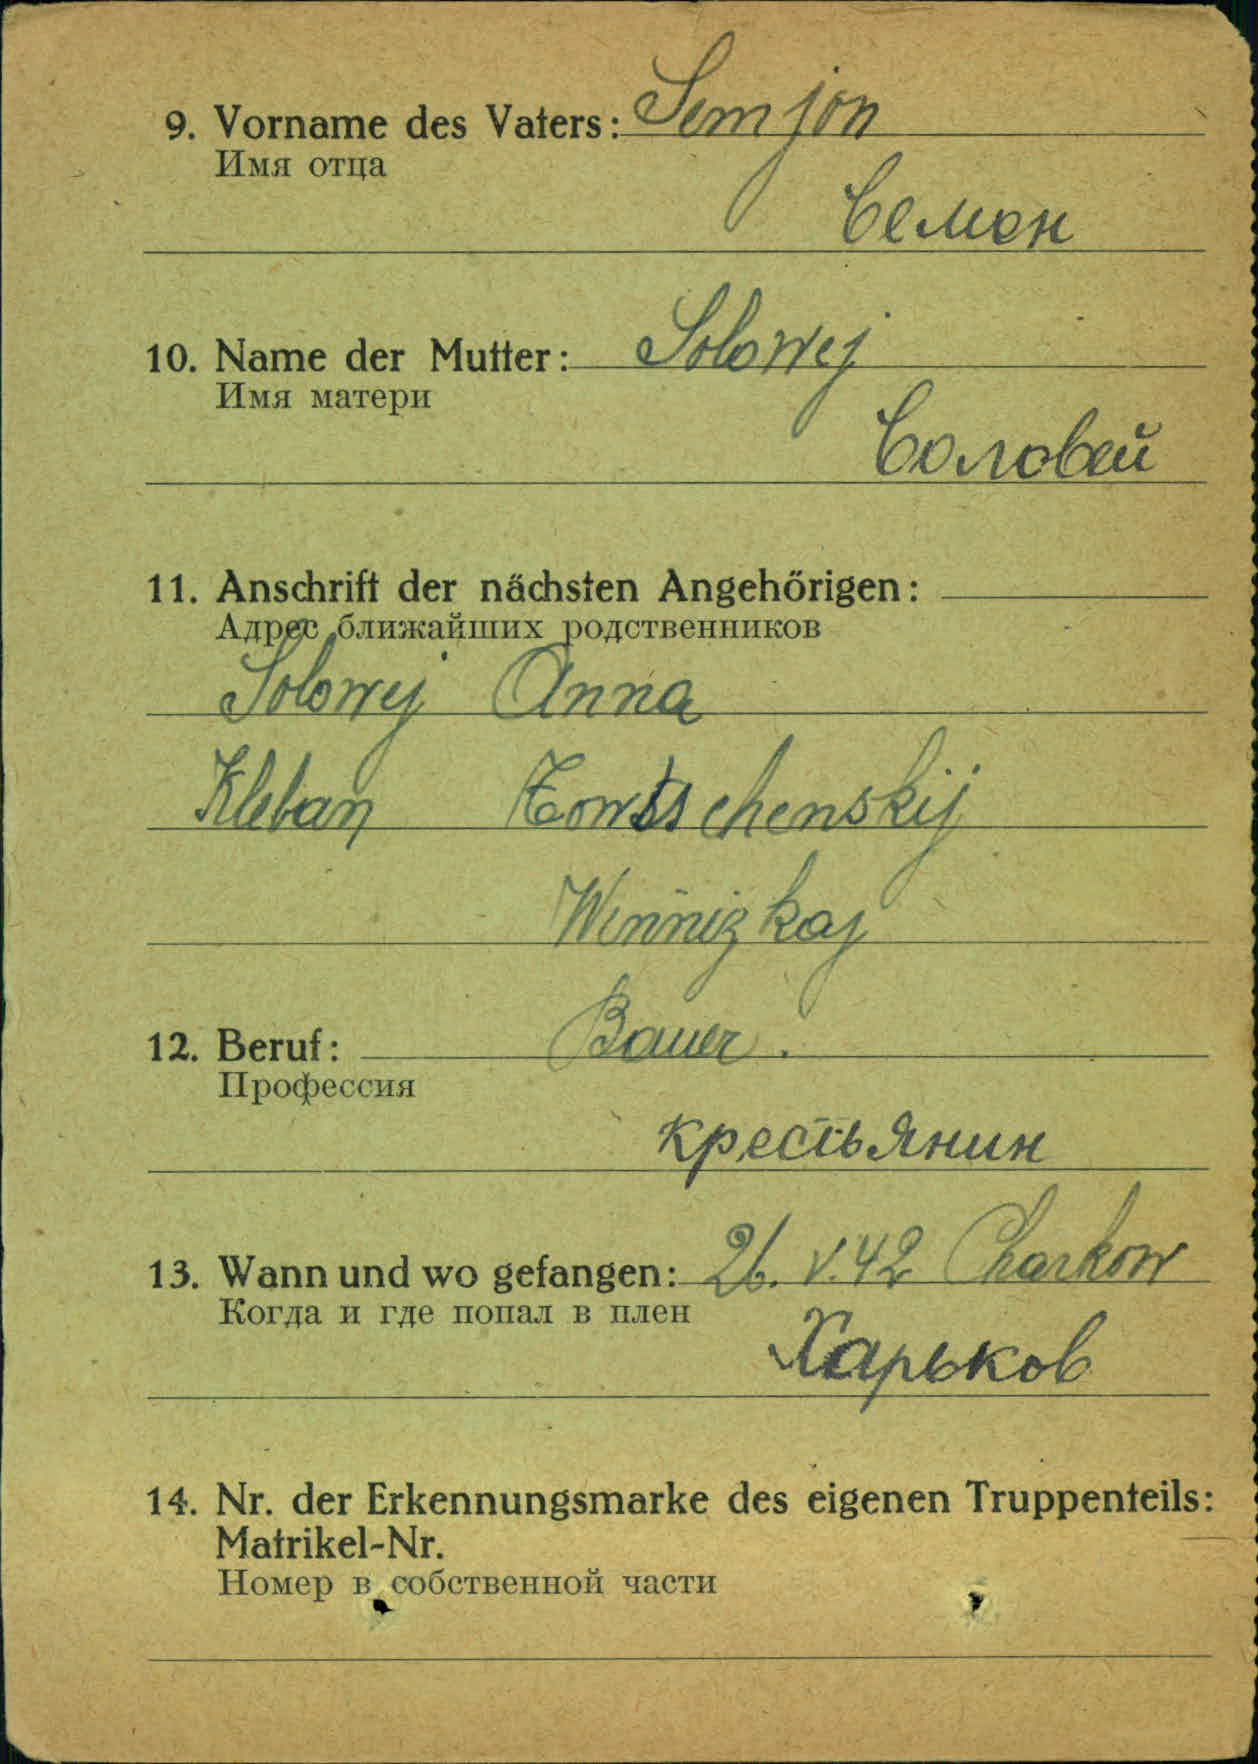 9. Vorname des Vaters: Semjon
Имя отца
Семен
10. Name der Mutter: Solowej
Имя матери
Соловей
11. Anschrift der nächsten Angehörigen:
Адрес ближайших родственников
Solowej Anna
Kleban
Winnizkaj
12. Beruf: Bauer.
Профессия
крестьянин
13. Wann und wo gefangen: 26. V. 42 Charkow
Когда и где попал в плен
Харьков
14. Nr. der Erkennungsmarke des eigenen Truppenteils:
Matrikel-Nr.
Номер в собственной части